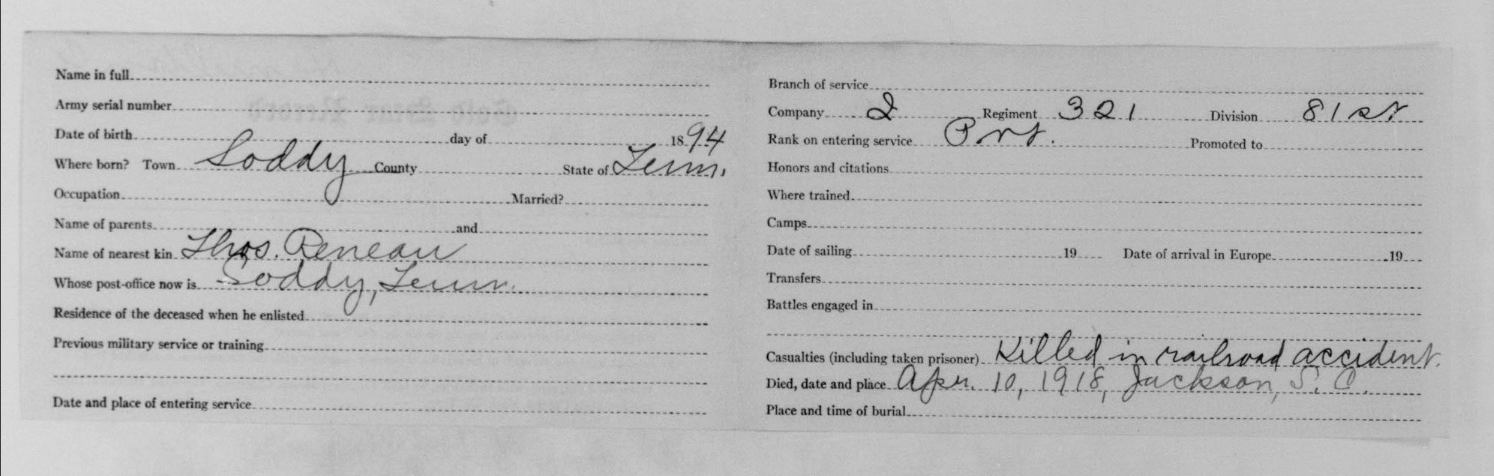 Name in full
Army serial number
Date of birth day of 1894
Where born? Town Soddy County State of Tenn.
Occupation Married?
Name of parents and
Name of nearest kin Thos. Reneau
Whose post-office now is Soddy, Tenn.
Residence of the deceased when he enlisted
Previous military service or training
Date and place of entering service
Branch of service
Company Regiment 321 Division 81st
Rank on entering service Pvt. Promoted to
Honors and citations
Where trained
Camps
Date of sailing 19 Date of arrival in Europe 19
Transfers
Battles engaged in
Casualties (including taken prisoner) Killed in railroad accident.
Died, date and place Apr. 10, 1918, Jackson, S. C.
Place and time of burial